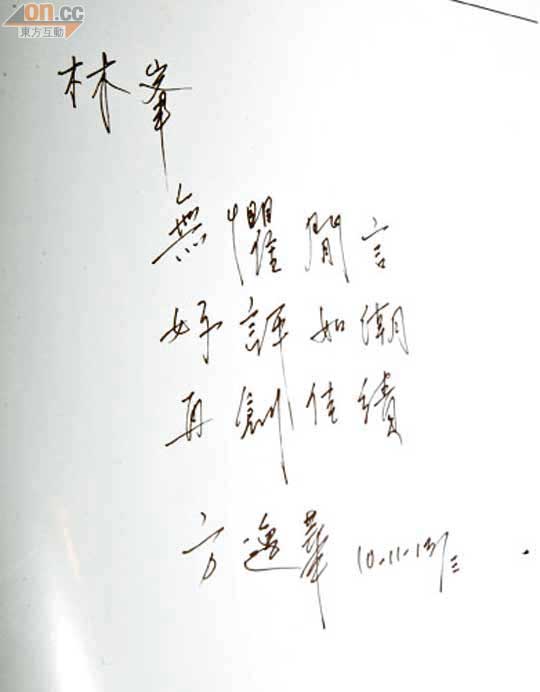 on.cc
東方互動
林峯
無懼閒言
好評如潮
再創佳績
方逸華 10-11-13/三